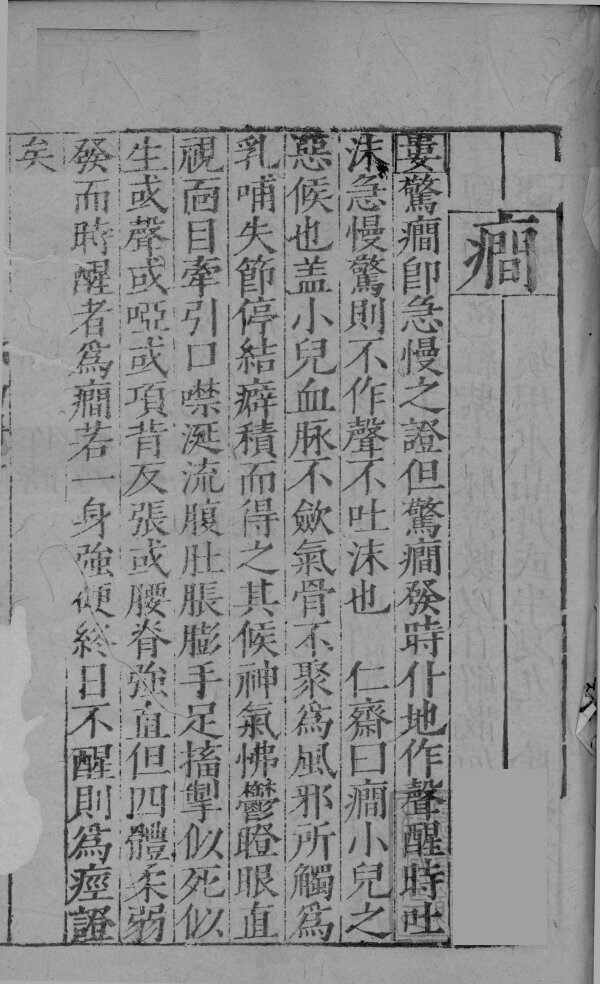 癎
婁驚癎即急慢之證但驚癎發時什地作聲醒時吐
沫急慢驚則不作聲不吐沫也　仁齋曰癎小兒之
惡候也盖小兒血脉不歛氣骨不聚爲風邪所觸爲
乳哺失節停結癖積而得之其候神氣怫鬱瞪眼直
視面目牽引口噤涎流腹肚脹膨手足搐掣似死似
生或聲或啞或項背反張或腰脊強直但四體柔弱
發而時醒者爲癎若一身強硬終日不醒則爲痙證
矣